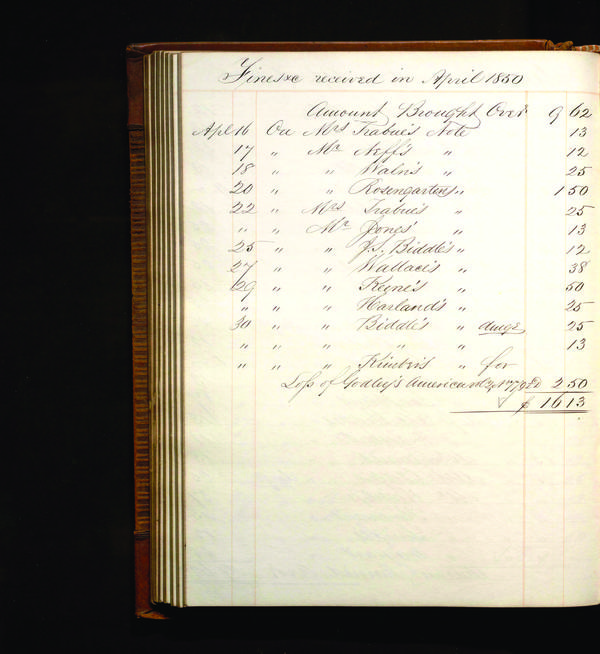 Fines &c received in April 1850
Amount Brought Over 9 62
Apl 16 On Mrs Trabue's Note 13
17 " Mr Neff's " 12
18 " " Waln's " 25
20 " " Rosengarten's " 1 50
22 " Mrs Trabue's " 25
" " Mr Jones' " 13
25 " " J.S. Biddle's " 12
27 " " Wallace's " 38
29 " " Keene's " 50
" " " Harland's " 25
30 " " Biddle's " 25
" " " " " 13
" " " " for
Loss of Godley's American 2 50
$ 16 13